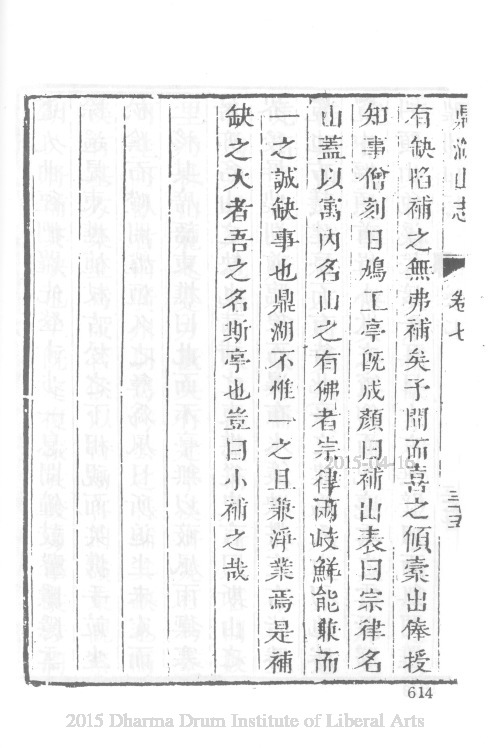 鼎湖山志
卷七
三五
有缺陷補之無弗補矣予聞而喜之傾橐出俸授
知事僧刻日鳩工亭旣成顏曰補山表曰宗律名
山蓋以寓內名山之有佛者宗律兩岐鮮能兼而
一之誠缺事也鼎湖不惟一之且兼淨業焉是補
缺之大者吾之名斯亭也豈曰小補之哉
2015-04-16
614
2015 Dharma Drum Institute of Liberal Arts